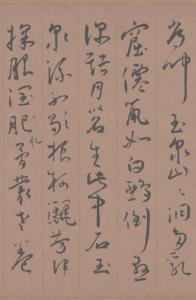 常聞玉泉山〻洞多乳
窟僊鼠如白鴉倒懸
深谿月茗生此中石玉
泉流不歇根柯灑芳津
採服潤肌骨叢老卷